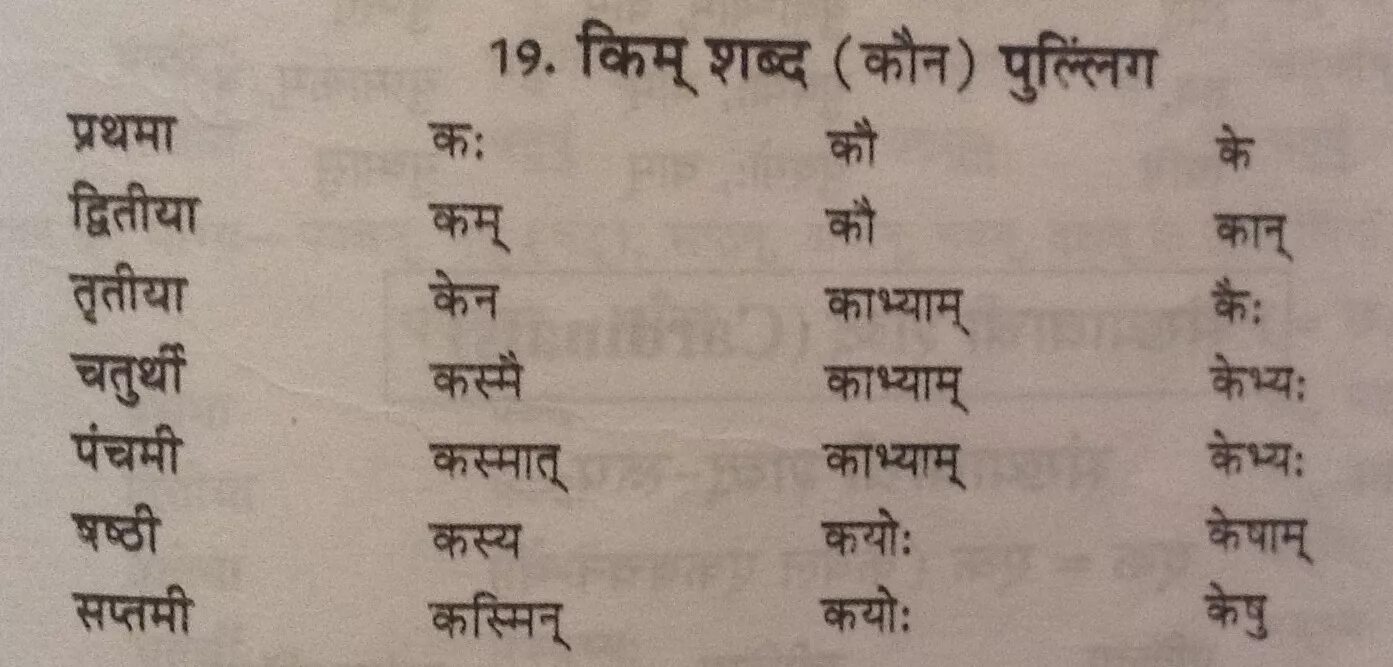 19. किम् शब्द (कौन) पुल्लिंग
प्रथमा कः कौ के
द्वितीया कम् कौ कान्
तृतीया केन काभ्याम् कैः
चतुर्थी कस्मै काभ्याम् केभ्यः
पंचमी कस्मात् काभ्याम् केभ्यः
षष्ठी कस्य कयोः केषाम्
सप्तमी कस्मिन् कयोः केषु